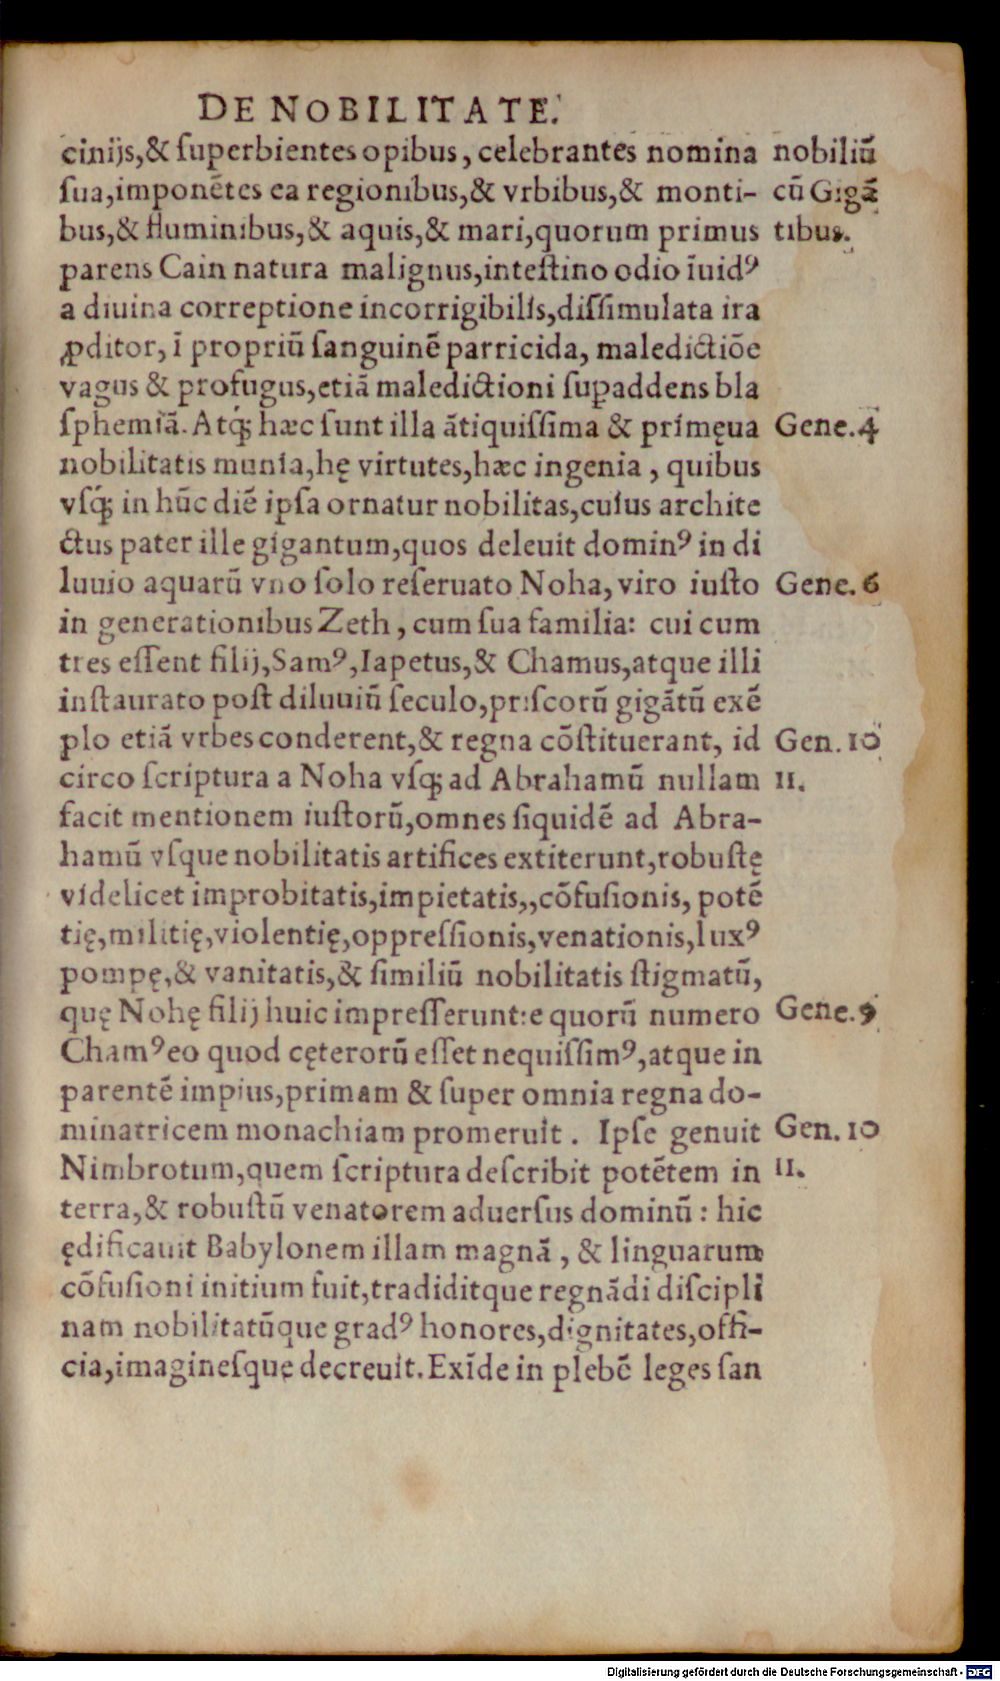 DE NOBILITATE.
cinijs,& ſuperbientes opibus, celebrantes nomina nobiliũ
ſua,imponẽtes ea regionibus,& vrbibus,& monti- cũ Gigã
bus,& fluminibus,& aquis,& mari,quorum primus tibus.
parens Cain natura malignus,inteſtino odio ĩuidꝰ
a diuina correptione incorrigibilis,diſſimulata ira
ꝓditor, ĩ propriũ ſanguinẽ parricida, maledictiõe
vagus & profugus,etiã maledictioni ſupaddens bla
ſphemiã. Atq́; hæc ſunt illa ãtiquiſſima & primęua Gene.4
nobilitatis munia,hę virtutes,hæc ingenia, quibus
vſq́; in hũc diẽ ipſa ornatur nobilitas,cuius archite
ctus pater ille gigantum,quos deleuit dominꝰ in di
luuio aquarũ vno ſolo reſeruato Noha, viro iuſto Gene. 6
in generationibus Zeth, cum ſua familia: cui cum
tres eſſent filij,Samꝰ,Iapetus,& Chamus,atque illi
inſtaurato poſt diluuiũ ſeculo,priſcorũ gigãtũ exẽ
plo etiã vrbes conderent,& regna cõſtituerant, id Gen. 10
circo ſcriptura a Noha vſq; ad Abrahamũ nullam 11.
facit mentionem iuſtorũ,omnes ſiquidẽ ad Abra-
hamũ vſque nobilitatis artifices extiterunt,robuſtę
videlicet improbitatis,impietatis,,cõfuſionis, potẽ
tię,militię,violentię,oppreſſionis,venationis,luxꝰ
pompę,& vanitatis,& ſimiliũ nobilitatis ſtigmatũ,
quę Nohę filij huic impreſſerunt:e quorũ numero Gene.9
Chamꝰ eo quod cęterorũ eſſet nequiſſimꝰ,atque in
parentẽ impius,primam & ſuper omnia regna do-
minatricem monachiam promeruit. Ipſe genuit Gen. 10
Nimbrotum,quem ſcriptura deſcribit potẽtem in 11.
terra,& robuſtũ venatorem aduerſus dominũ: hic
ędificauit Babylonem illam magnã, & linguarum
cõfuſioni initium fuit,tradiditque regnãdi diſcipli
nam nobilitatũque gradꝰ honores,dignitates,offi-
cia,imagineſque decreuit. Exĩde in plebẽ leges ſan
Digitalisierung gefördert durch die Deutsche Forschungsgemeinschaft - DFG